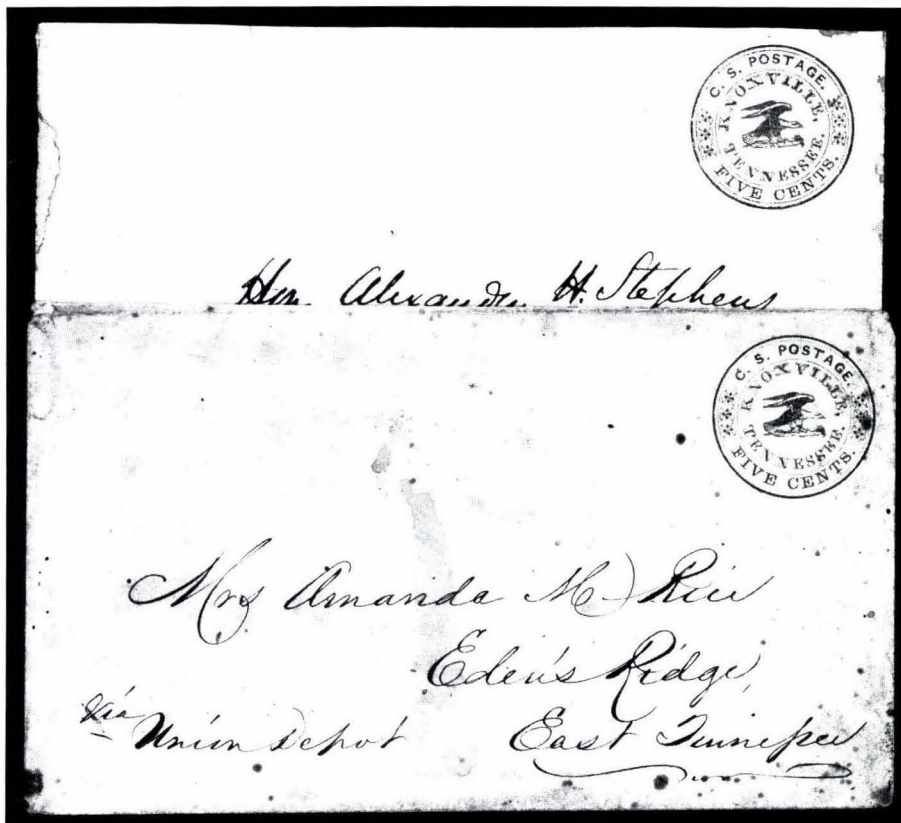 C. S. POSTAGE.
KNOXVILLE,
TENNESSEE.
FIVE CENTS.
Hon. Alexander H. Stephens
C. S. POSTAGE.
KNOXVILLE,
TENNESSEE.
FIVE CENTS.
Mrs Amanda M. Rice
Eden's Ridge,
via
Union Depot East Tennessee